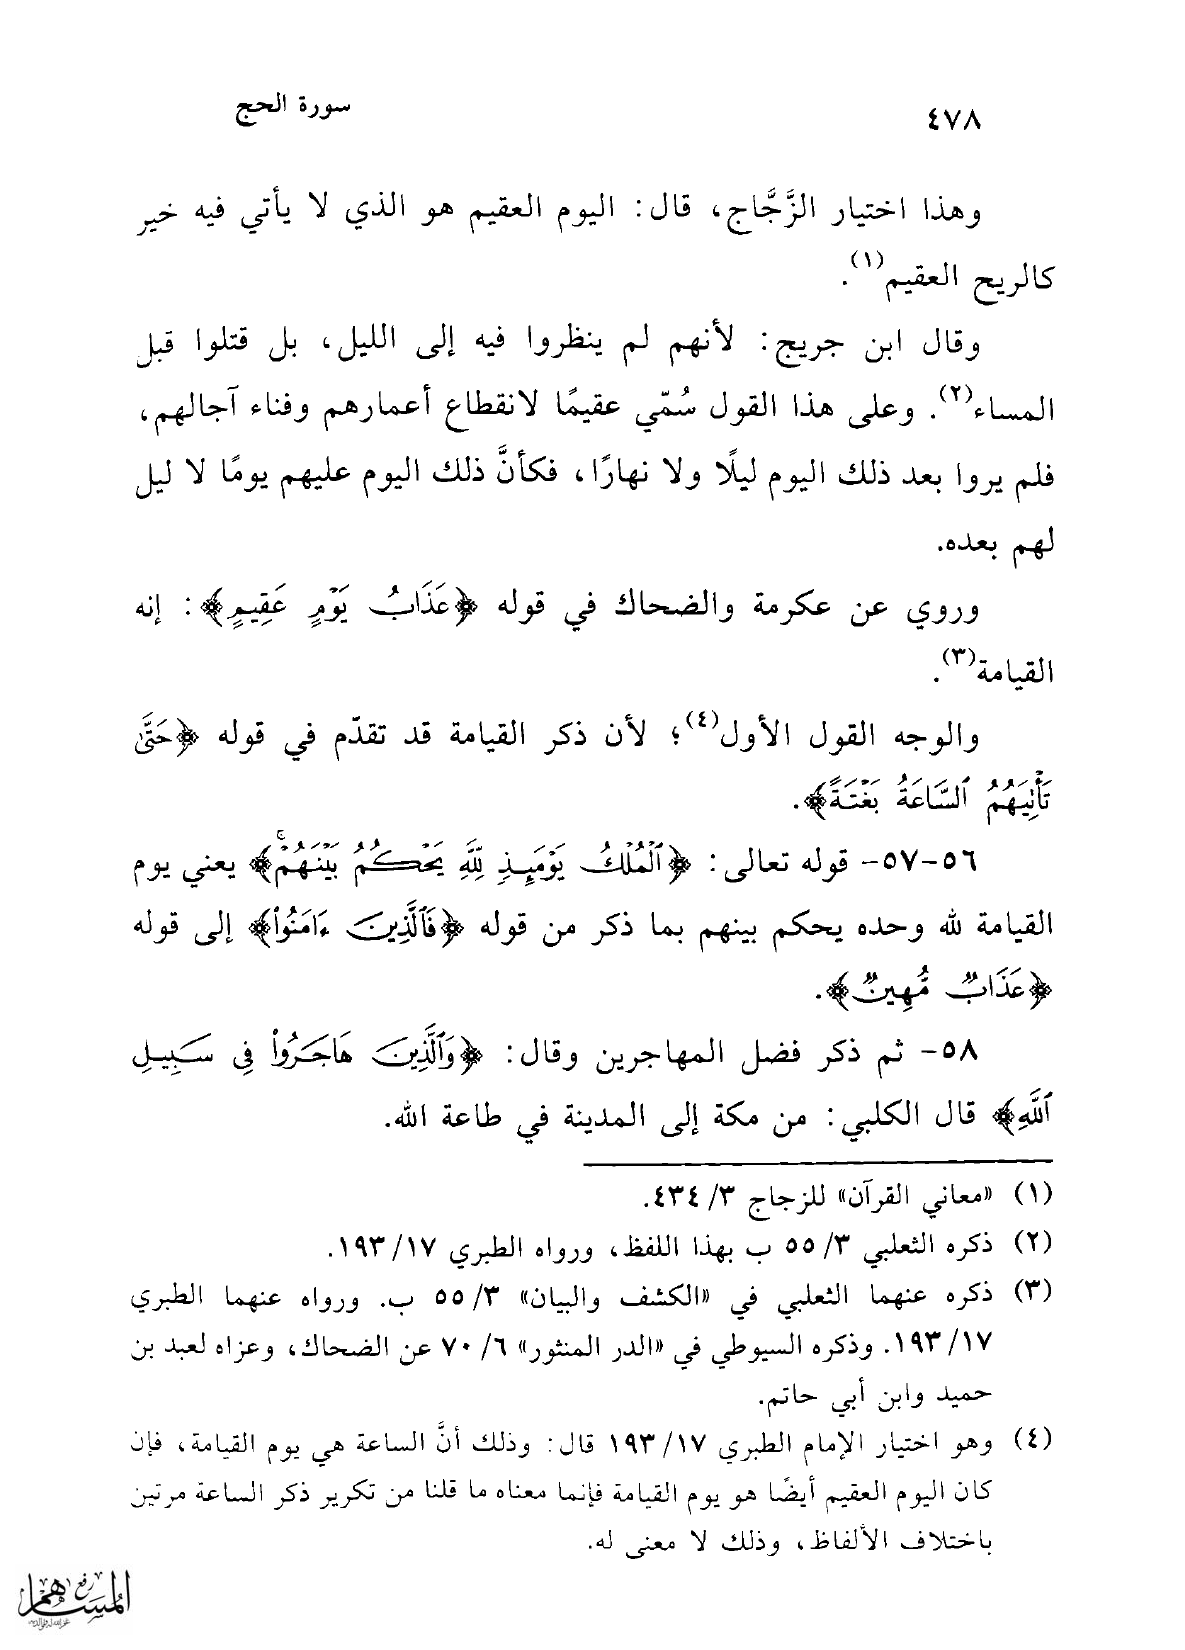 ٤٧٨
سورة الحج
وهذا اختيار الزَّجَّاج، قال: اليوم العقيم هو الذي لا يأتي فيه خير
كالريح العقيم(١).
وقال ابن جريج: لأنهم لم ينظروا فيه إلى الليل، بل قتلوا قبل
المساء(٢). وعلى هذا القول سُمّي عقيمًا لانقطاع أعمارهم وفناء آجالهم،
فلم يروا بعد ذلك اليوم ليلًا ولا نهارًا، فكأنَّ ذلك اليوم عليهم يومًا لا ليل
لهم بعده.
وروي عن عكرمة والضحاك في قوله ﴿عَذَابُ يَوْمٍ عَقِيمٍ﴾: إنه
القيامة(٣).
والوجه القول الأول(٤)؛ لأن ذكر القيامة قد تقدّم في قوله ﴿حَتَّىٰ
تَأْتِيَهُمُ ٱلسَّاعَةُ بَغْتَةً﴾.
٥٦-٥٧- قوله تعالى: ﴿ٱلْمُلْكُ يَوْمَئِذٍ لِّلَّهِ يَحْكُمُ بَيْنَهُمْۚ﴾ يعني يوم
القيامة لله وحده يحكم بينهم بما ذكر من قوله ﴿فَٱلَّذِينَ ءَامَنُوا۟﴾ إلى قوله
﴿عَذَابٌ مُّهِينٌ﴾.
٥٨- ثم ذكر فضل المهاجرين وقال: ﴿وَٱلَّذِينَ هَاجَرُوا۟ فِى سَبِيلِ
ٱللَّهِ﴾ قال الكلبي: من مكة إلى المدينة في طاعة الله.
(١) «معاني القرآن» للزجاج ٣/ ٤٣٤.
(٢) ذكره الثعلبي ٣/ ٥٥ ب بهذا اللفظ، ورواه الطبري ١٧/ ١٩٣.
(٣) ذكره عنهما الثعلبي في «الكشف والبيان» ٣/ ٥٥ ب. ورواه عنهما الطبري
١٧/ ١٩٣. وذكره السيوطي في «الدر المنثور» ٦/ ٧٠ عن الضحاك، وعزاه لعبد بن
حميد وابن أبي حاتم.
(٤) وهو اختيار الإمام الطبري ١٧/ ١٩٣ قال: وذلك أنَّ الساعة هي يوم القيامة، فإن
كان اليوم العقيم أيضًا هو يوم القيامة فإنما معناه ما قلنا من تكرير ذكر الساعة مرتين
باختلاف الألفاظ، وذلك لا معنى له.